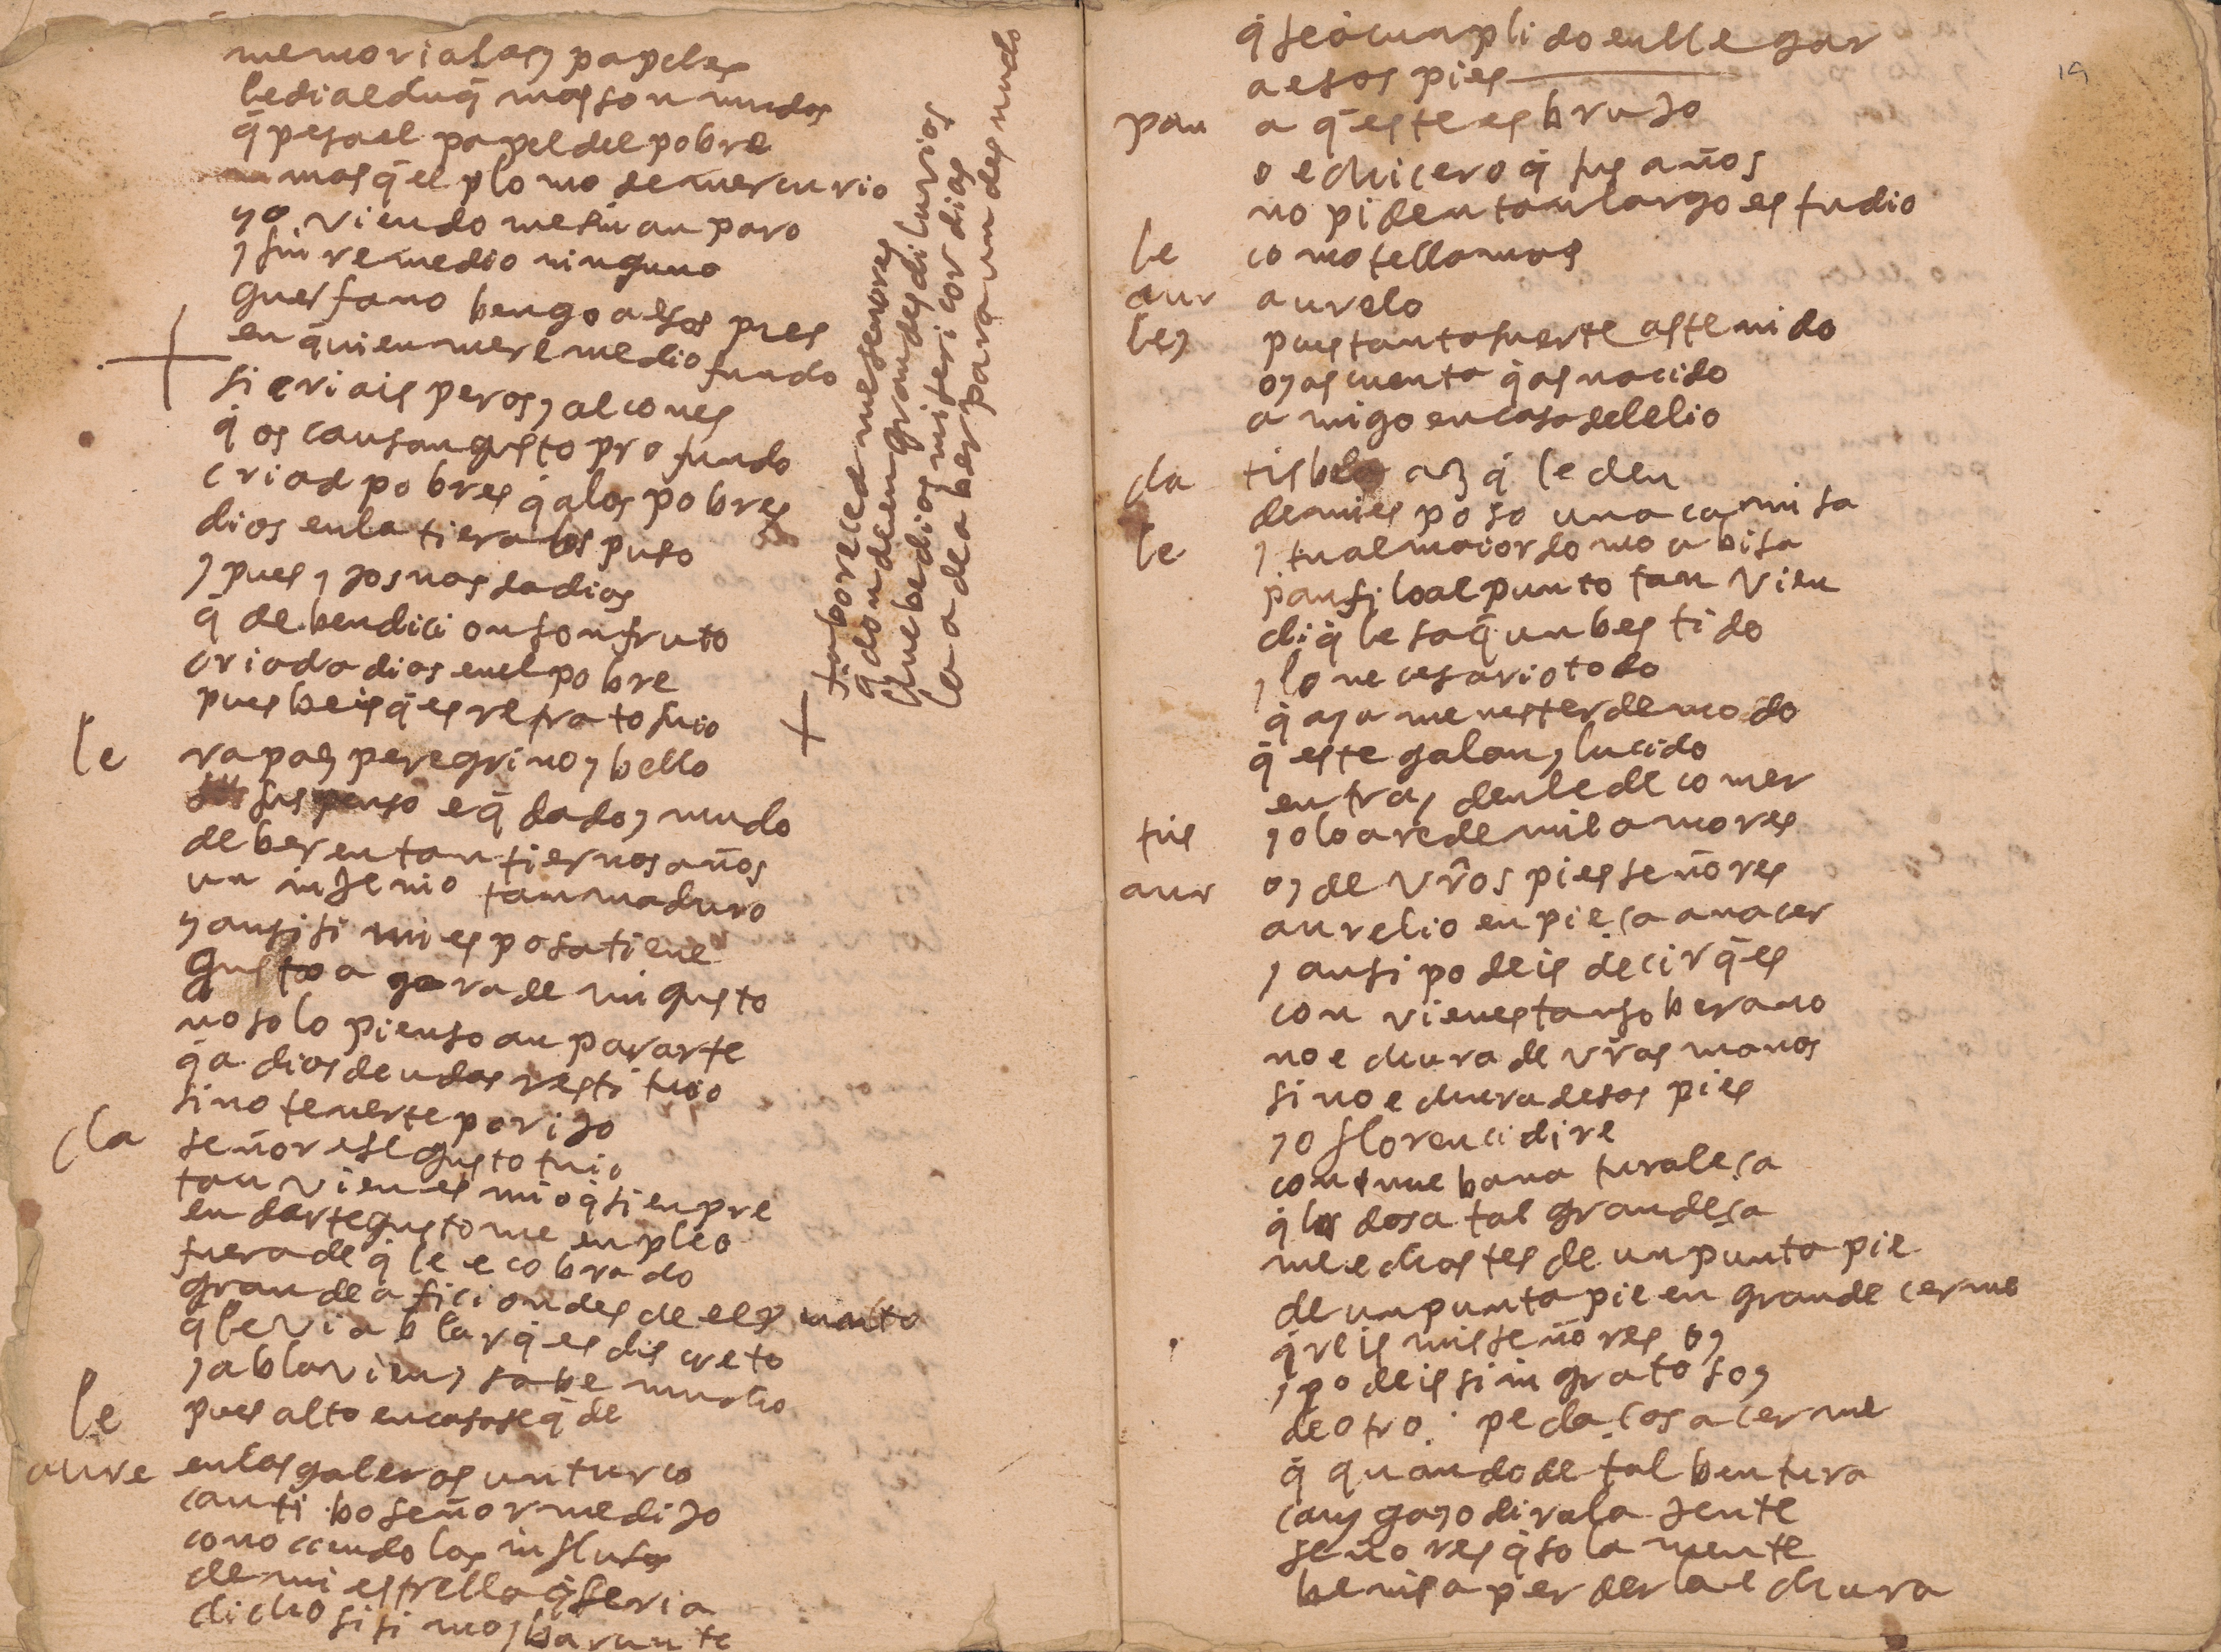 memorialas y papeles
le di al duq̄ mas son mudos
q̄ pesa el papel del pobre
mas q̄ el plomo de mercurio
yo viendo me sin anparo
y sin remedio ninguno
guerfano bengo a esos pies
en quien me remedio fundo
si criais peros y alcones
q̇ os causan gusto profundo
criad pobres q̇ a los pobres
dios en la tiera los puso
y pues y jos nos da dios
q̄ de bendicion son fruto
criad a dios en el pobre
pues beis q̄ es retrato suio
le rapaz peregrino y bello
suspenso e q̄dado y mudo
de ber en tan tiernos años
un injenio tan maduro
y ansi si mi esposa tiene
gusto a gora de mi gusto
no solo pienso anpararte
q̄ a dios deudas restituio
sino tenerte por ijo
cla señor ese gusto tuio
tan vien es mio q̇ sienpre
en darte gusto me enpleo
fuera de q̇ le e cobrado
grande aficion desde el punto
q̇ le vi ablar q̇ es discreto
y abla vien y sabe mucho
le pues alto en casa se q̄de
aure en las galeras un turco
cautibo señor me dijo
conociendo los influsos
de mi estrella q̇ seria
dichosisimo y barunte
+ faboreced me señores
q̇ donde en grandes diluvios
lluebe dios misericordias
la a de aber para un desnudo
q̇ se a cunplido en llegar
a esos pies
pan a q̄ este es brujo
o echicero q̇ sus años
no piden tan largo estudio
le como te llamas
aur aurelo
ley pues tanta suerte as tenido
oy as cuenta q̇ as nacido
amigo en casa de lelio
cla tisbea az q̇ le den
de mi esposo una camisa
le y tu al maiordomo abisa
panfilo al punto tan vien
di q̇ le saq̄ un bestido
y lo necesario todo
q̇ aya menester de modo
q̄ este galan y lucido
entra y denle de comer
tis yo lo are de mil amores
aur oy de vr̄os pies señores
aurelio enpieça a nacer
y ansi podeis decir q̄ es
con vienes tan soberano
no echura de vr̄as manos
sino echura desos pies
yo florenci dire
con nueba naturaleça
q̇ los dos a tal grandeça
me echastes de un puntapie
de un puntapie en grandecerme
q̇reis mis señores oy
y podeis si ingrato soy
de otro pedaços acerme
q̇ quando de tal bentura
cayga yo dira la jente
señores q̇ solamente
benis a perder la echura
19